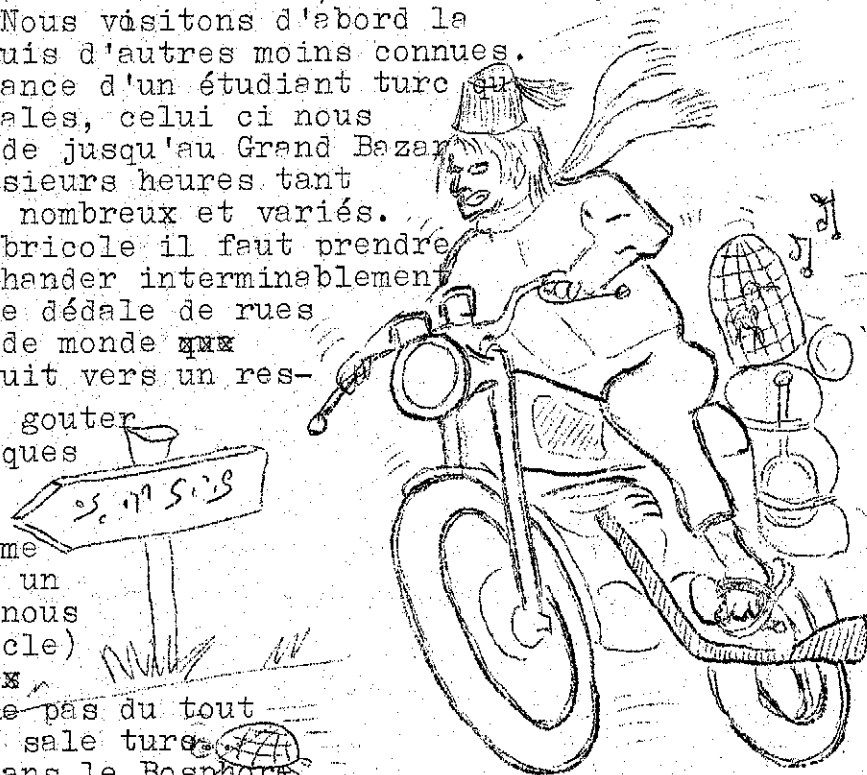 Nous visitons d'abord la
uis d'autres moins connues.
ance d'un étudiant turc qu
ales, celui ci nous
de jusqu'au Grand Bazar
sieurs heures tant
nombreux et variés.
bricole il faut prendre
hander interminablement
e dédale de rues
de monde qux
uit vers un res-
gouter
ques
me
un
nous
cle)
x
e pas du tout
sale turc
ans le Bosphore